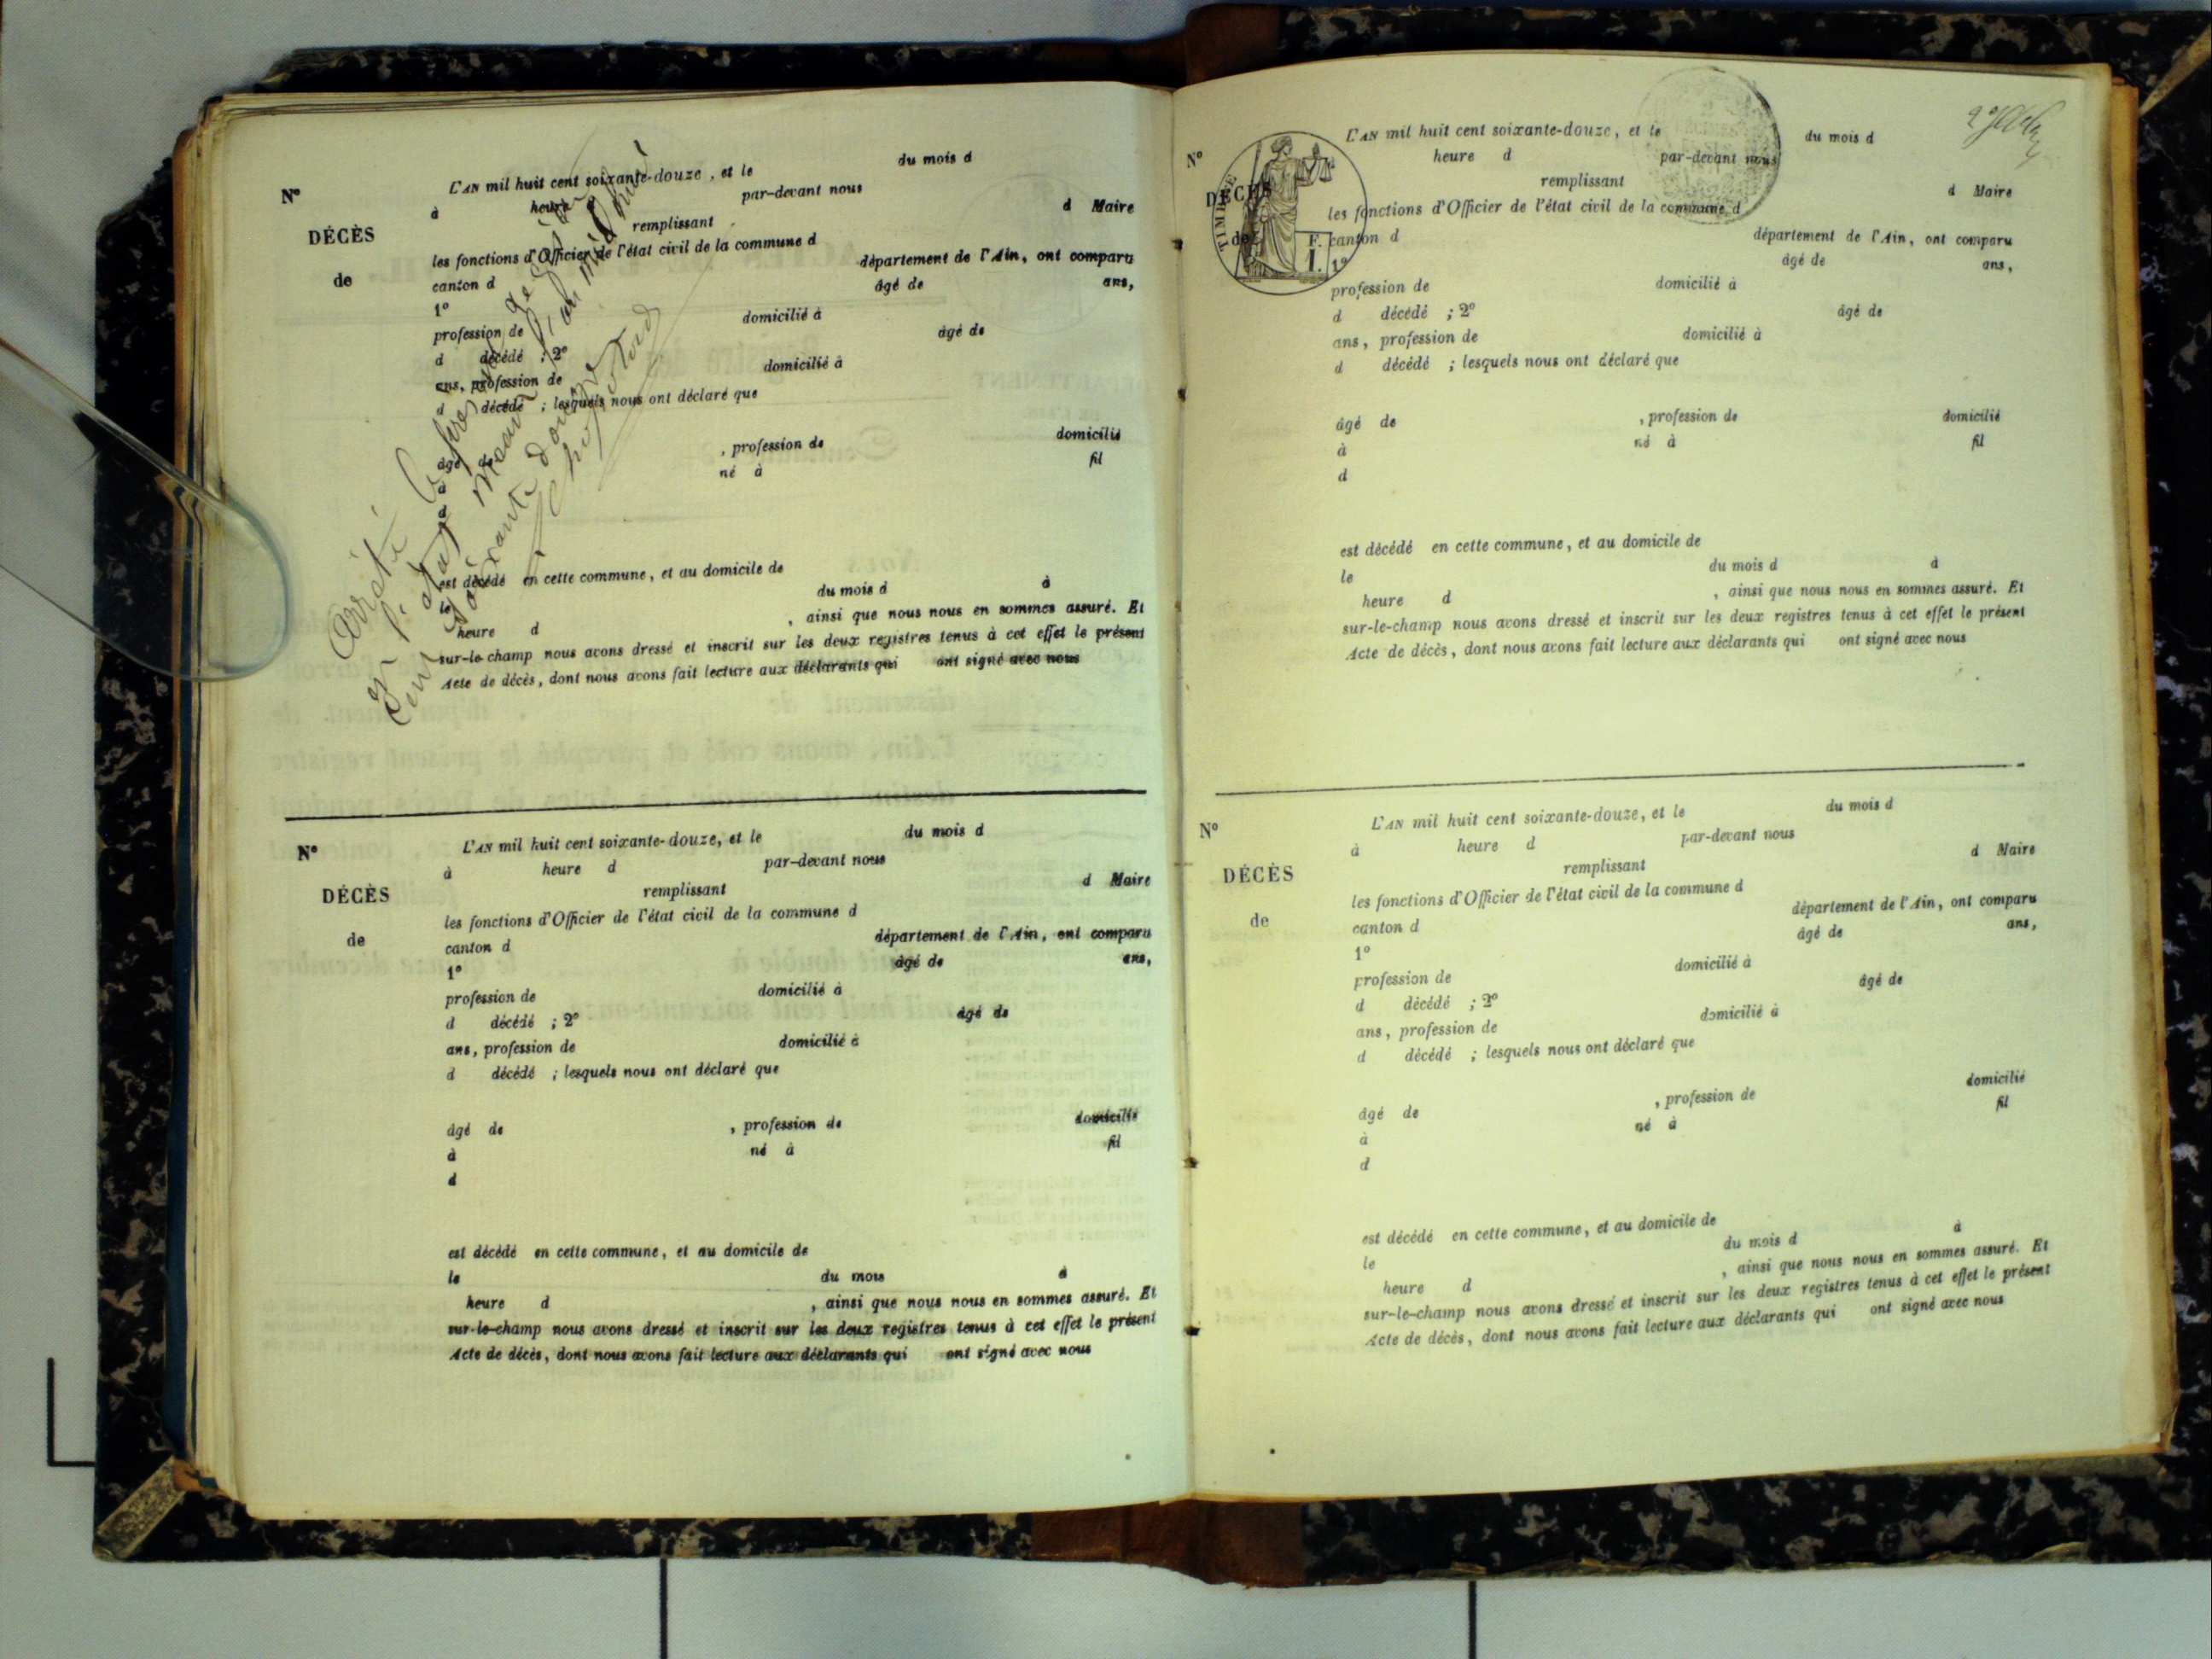 L'AN mil huit cent soixante-douze, et le du mois d
N° à heure d par-devant nous
remplissant d Maire
DÉCÈS les fonctions d'Officier de l'état civil de la commune d
de canton d département de l'Ain, ont comparu
1° âgé de ans,
profession de domicilié à
d décédé ; 2° âgé de
ans, profession de domicilié à
d décédé ; lesquels nous ont déclaré que
âgé de , profession de domicilié
à né à fil
d
est décédé en cette commune, et au domicile de
le du mois d à
heure d , ainsi que nous nous en sommes assuré. Et
sur-le-champ nous avons dressé et inscrit sur les deux registres tenus à cet effet le présent
Acte de décès, dont nous avons fait lecture aux déclarants qui ont signé avec nous
Arrêté le
soixante douze
N° L'AN mil huit cent soixante-douze, et le du mois d
à heure d par-devant nous
DÉCÈS remplissant d Maire
les fonctions d'Officier de l'état civil de la commune d
de canton d département de l'Ain, ont comparu
1° âgé de ans,
profession de domicilié à
d décédé ; 2° âgé de
ans, profession de domicilié à
d décédé ; lesquels nous ont déclaré que
âgé de , profession de domicilié
à né à fil
d
est décédé en cette commune, et au domicile de
le du mois à
heure d , ainsi que nous nous en sommes assuré. Et
sur-le-champ nous avons dressé et inscrit sur les deux registres tenus à cet effet le présent
Acte de décès, dont nous avons fait lecture aux déclarants qui ont signé avec nous
L'AN mil huit cent soixante-douze, et le du mois d
N° heure d par-devant nous
DÉCÈS remplissant d Maire
les fonctions d'Officier de l'état civil de la commune d
de canton d département de l'Ain, ont comparu
TIMBRE
F.
I.
1° âgé de ans,
profession de domicilié à
d décédé ; 2° âgé de
ans, profession de domicilié à
d décédé ; lesquels nous ont déclaré que
âgé de , profession de domicilié
à né à fil
d
est décédé en cette commune, et au domicile de
le du mois d à
heure d , ainsi que nous nous en sommes assuré. Et
sur-le-champ nous avons dressé et inscrit sur les deux registres tenus à cet effet le présent
Acte de décès, dont nous avons fait lecture aux déclarants qui ont signé avec nous
N° L'AN mil huit cent soixante-douze, et le du mois d
à heure d par-devant nous
DÉCÈS remplissant d Maire
les fonctions d'Officier de l'état civil de la commune d
de canton d département de l'Ain, ont comparu
1° âgé de ans,
profession de domicilié à
d décédé ; 2° âgé de
ans, profession de domicilié à
d décédé ; lesquels nous ont déclaré que
âgé de , profession de domicilié
à né à fil
d
est décédé en cette commune, et au domicile de
le du mois d à
heure d , ainsi que nous nous en sommes assuré. Et
sur-le-champ nous avons dressé et inscrit sur les deux registres tenus à cet effet le présent
Acte de décès, dont nous avons fait lecture aux déclarants qui ont signé avec nous